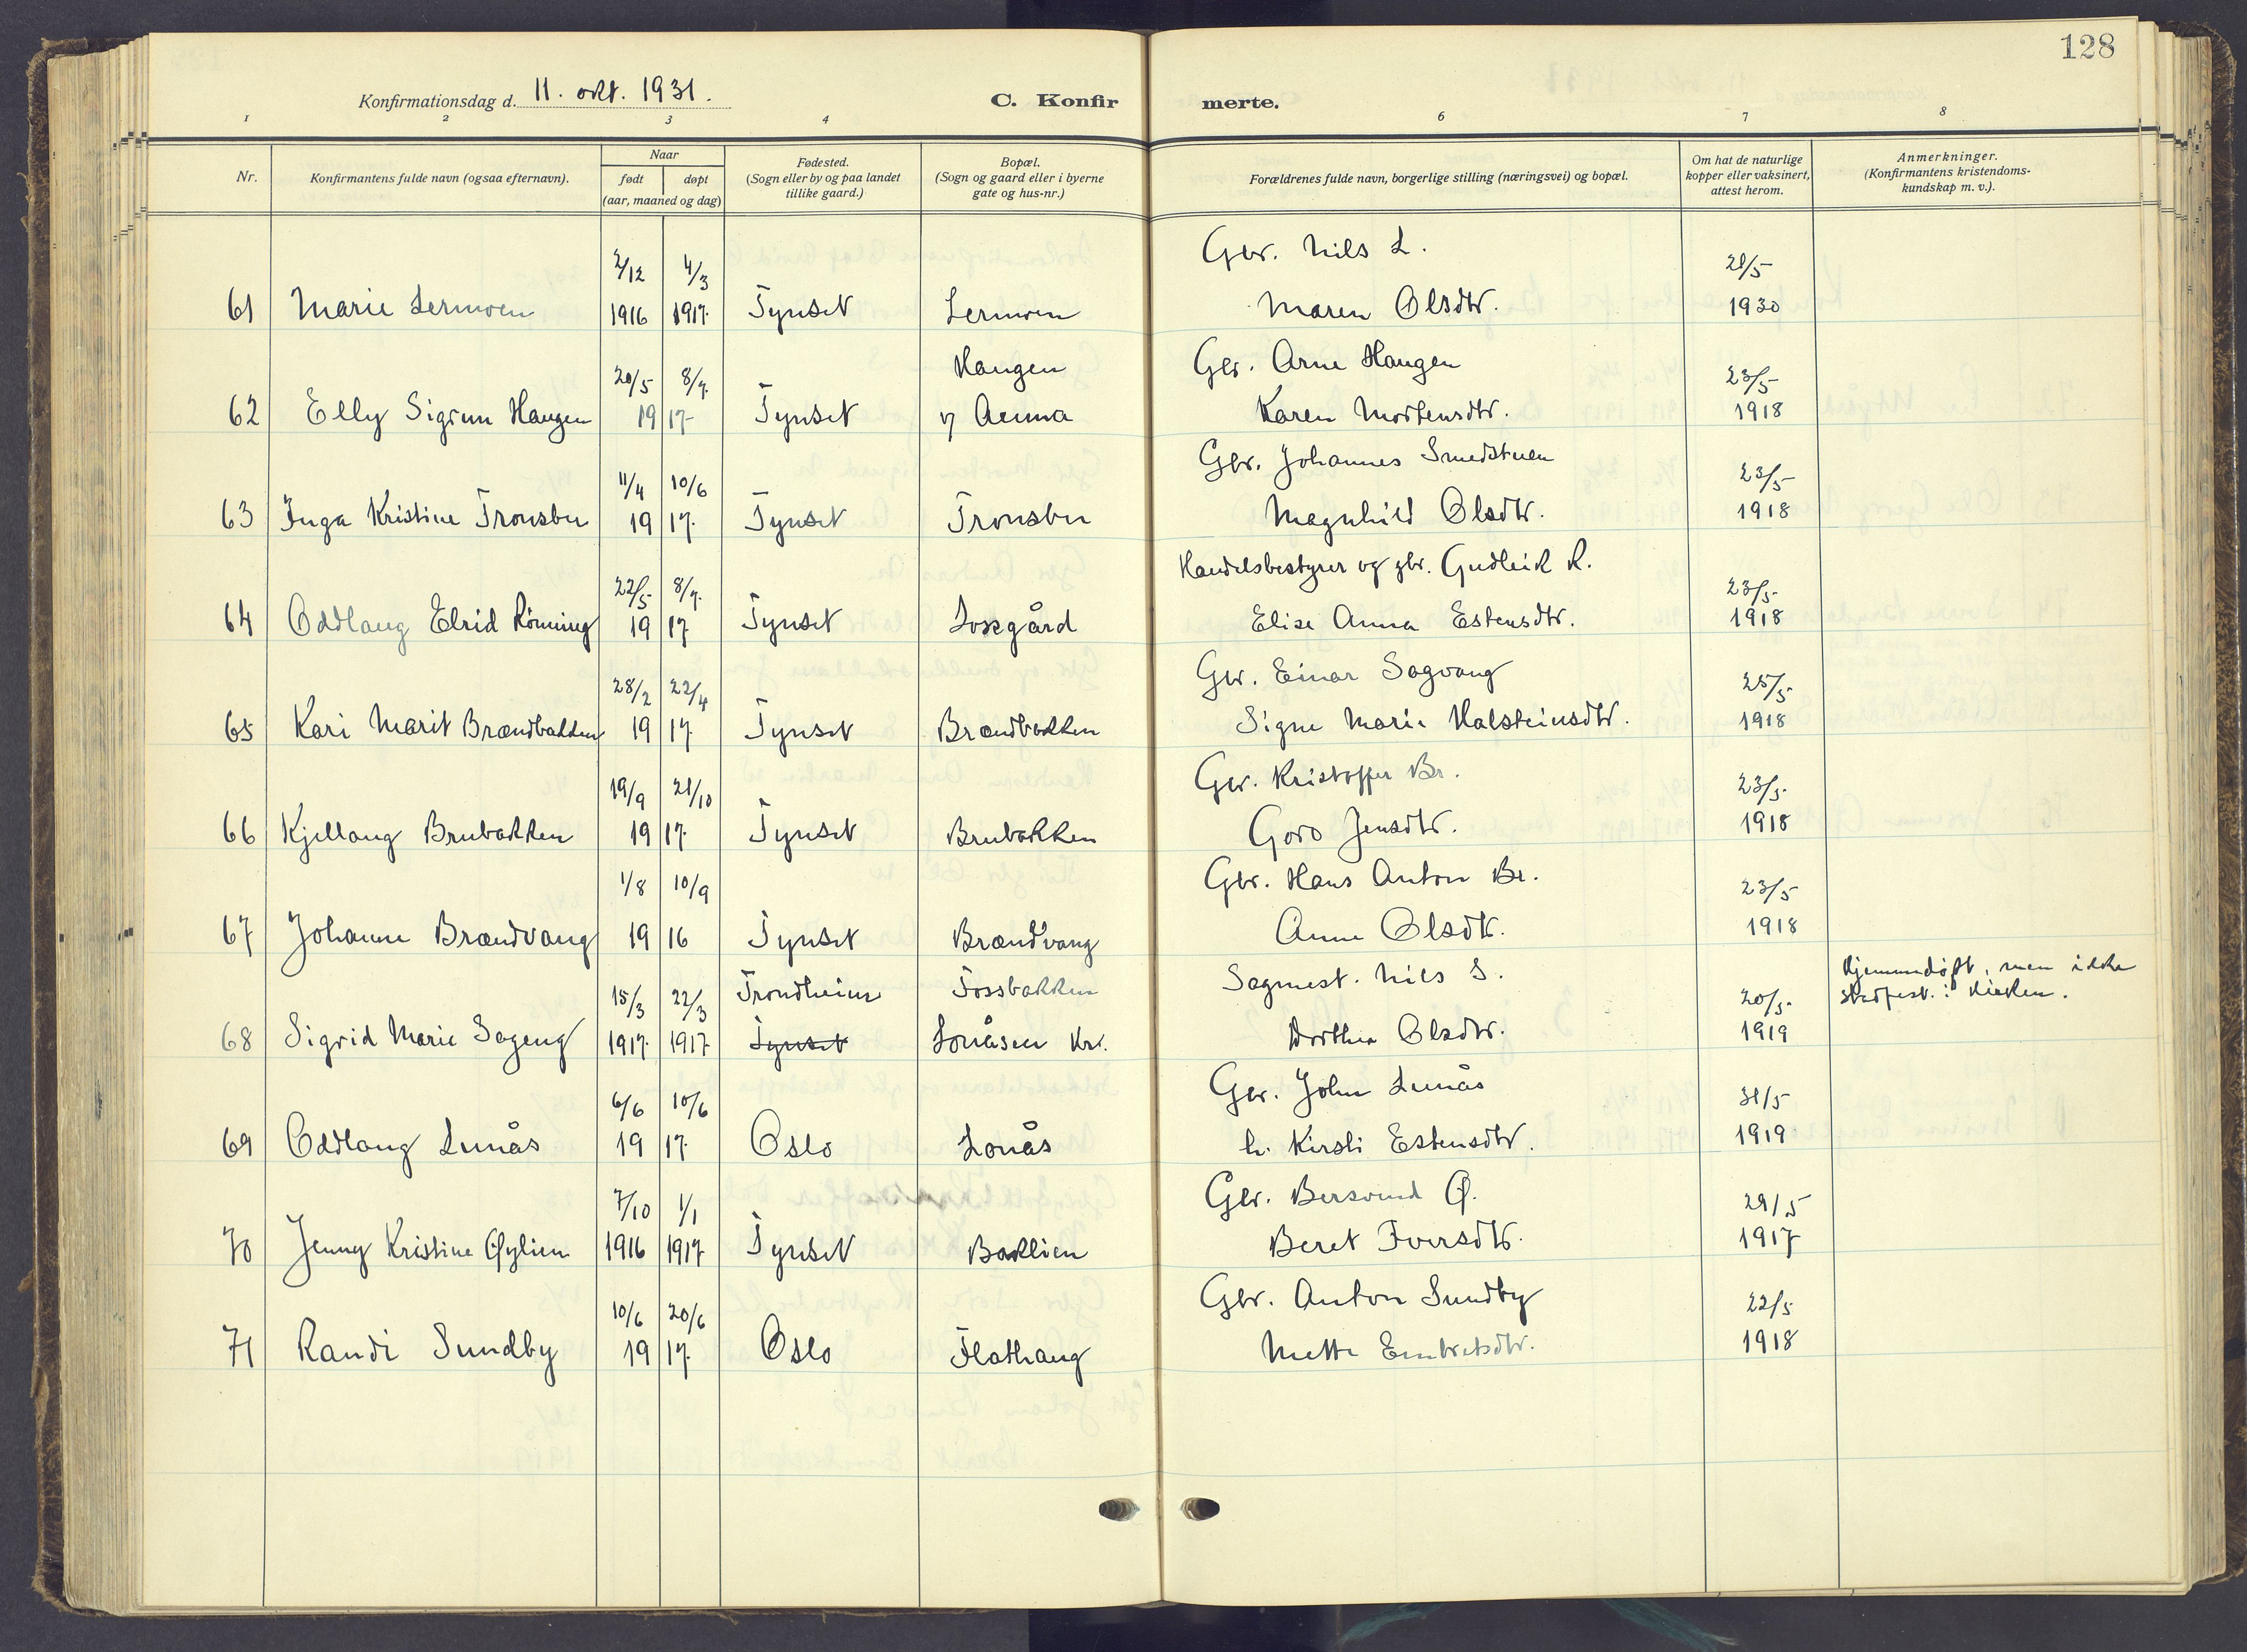 128
Konfirmationsdag d. 11. okt. 1931.
C. Konfir merte.
1 2 3 4 6 7 8
Nr.
Konfirmantens fulde navn (ogsaa efternavn).
Naar
født døpt
(aar, maaned og dag)
Fødested.
(Sogn eller by og paa landet
tillike gaard.)
Bopæl.
(Sogn og gaard eller i byerne
gate og hus-nr.)
Forældrenes fulde navn, borgerlige stilling (næringsvei) og bopæl.
Om hat de naturlige
kopper eller vaksinert,
attest herom.
Anmerkninger.
(Konfirmantens kristendoms-
kundskap m. v.).
2/12 4/3 Gbr. Nils L. 28/5
61 Marie Lermoen 1916 1917 Tynset Lermoen Maren Olsdtr. 1930
20/5 8/7 Haugen Gbr. Arne Haugen 23/5
62 Elly Sigrun Haugen 19 17 Tynset Karen Mortensdtr. 1918
11/4 10/6 Gbr. Johannes Smedstuen 23/5
63 Inga Kristine Tronsbu 19 17 Tynset Tronsbu Magnhild Olsdtr. 1918
22/5 8/7 Handelsbestyrer og gbr. Gudleik R. 23/5
64 Oddlaug Elrid Rønning 19 17 Tynset Losgård Elise Anna Estensdtr. 1918
28/2 22/4 Gbr. Einar Sagvang 25/5
65 Kari Marit Brændbakken 19 17 Tynset Brændbakken Signe Marie Halsteinsdtr. 1918
19/9 21/10 Gbr. Kristoffer Br. 23/5
66 Kjellaug Brubakken 19 17 Tynset Brubakken Goro Jensdtr. 1918
1/8 10/9 Gbr. Hans Anton Br. 23/5
67 Johanne Brændvang 19 16 Tynset Brændvang Anne Olsdtr. 1918
15/3 22/3 Trondheim Fossbakken Sagmest. Nils S. 20/5 Hjemmedøpt, men ikke
stadfest. i kirken.
68 Sigrid Marie Sageng 1917 1917 Tynset Lonåsen kr. Dorthea Olsdtr. 1919
6/6 10/6 Gbr. John Lunås 31/5
69 Oddlaug Lunås 19 17 Oslo Lonås h. Kirsti Estensdtr. 1919
7/10 1/1 Gbr. Bersvend Ø. 29/5
70 Jenny Kristine Øylien 1916 1917 Tynset Baklien Beret Iversdtr. 1917
10/6 20/6 Gbr. Anton Sundby 22/5
71 Randi Sundby 19 17 Oslo Flathaug Mette Embretsdtr. 1918